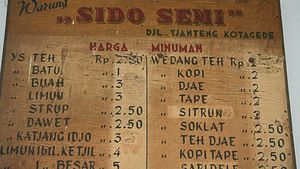 Warung
„SIDO SEMI”
DJL. TJANTENG KOTAGEDE
HARGA MINUMAN
YS TEH Rp. 2.50
" BATU " 2
" BUAH " 3
" LIMUN " 3
" STRUP " 2.50
" DAWET " 2.50
" KATJANG IDJO " 3
LIMUN IBIL. KETJIL " 4
" 1 " BESAR " 5
WEDANG TEH Rp.
" KOPI " 2
" DJAE " 2
" TAPE " 2
" SITRUN " 2
" SOKLAT " 2.50
" TEH DJAE " 2.50
" KOPI TAPE " 2.50